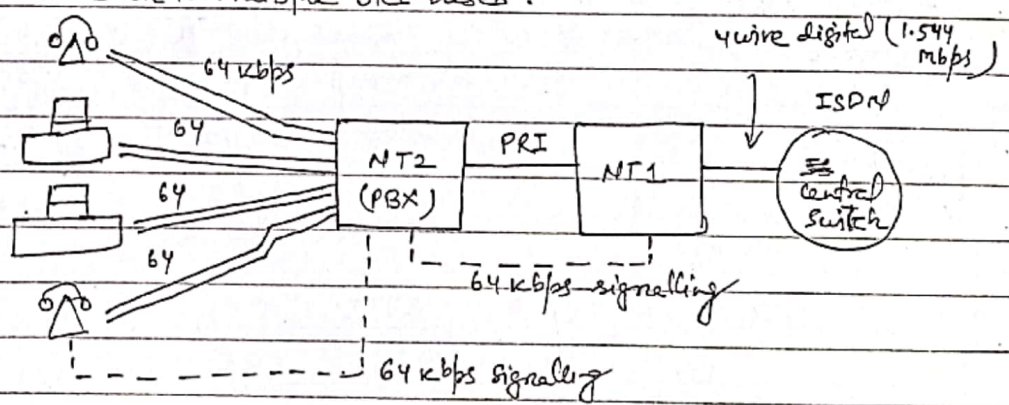 4 wire digital (1.544
mbps)
64 kbps
ISDN
64
PRI
NT2
(PBX)
NT1
central
switch
64
64
64 kbps signalling
64 kbps signalling